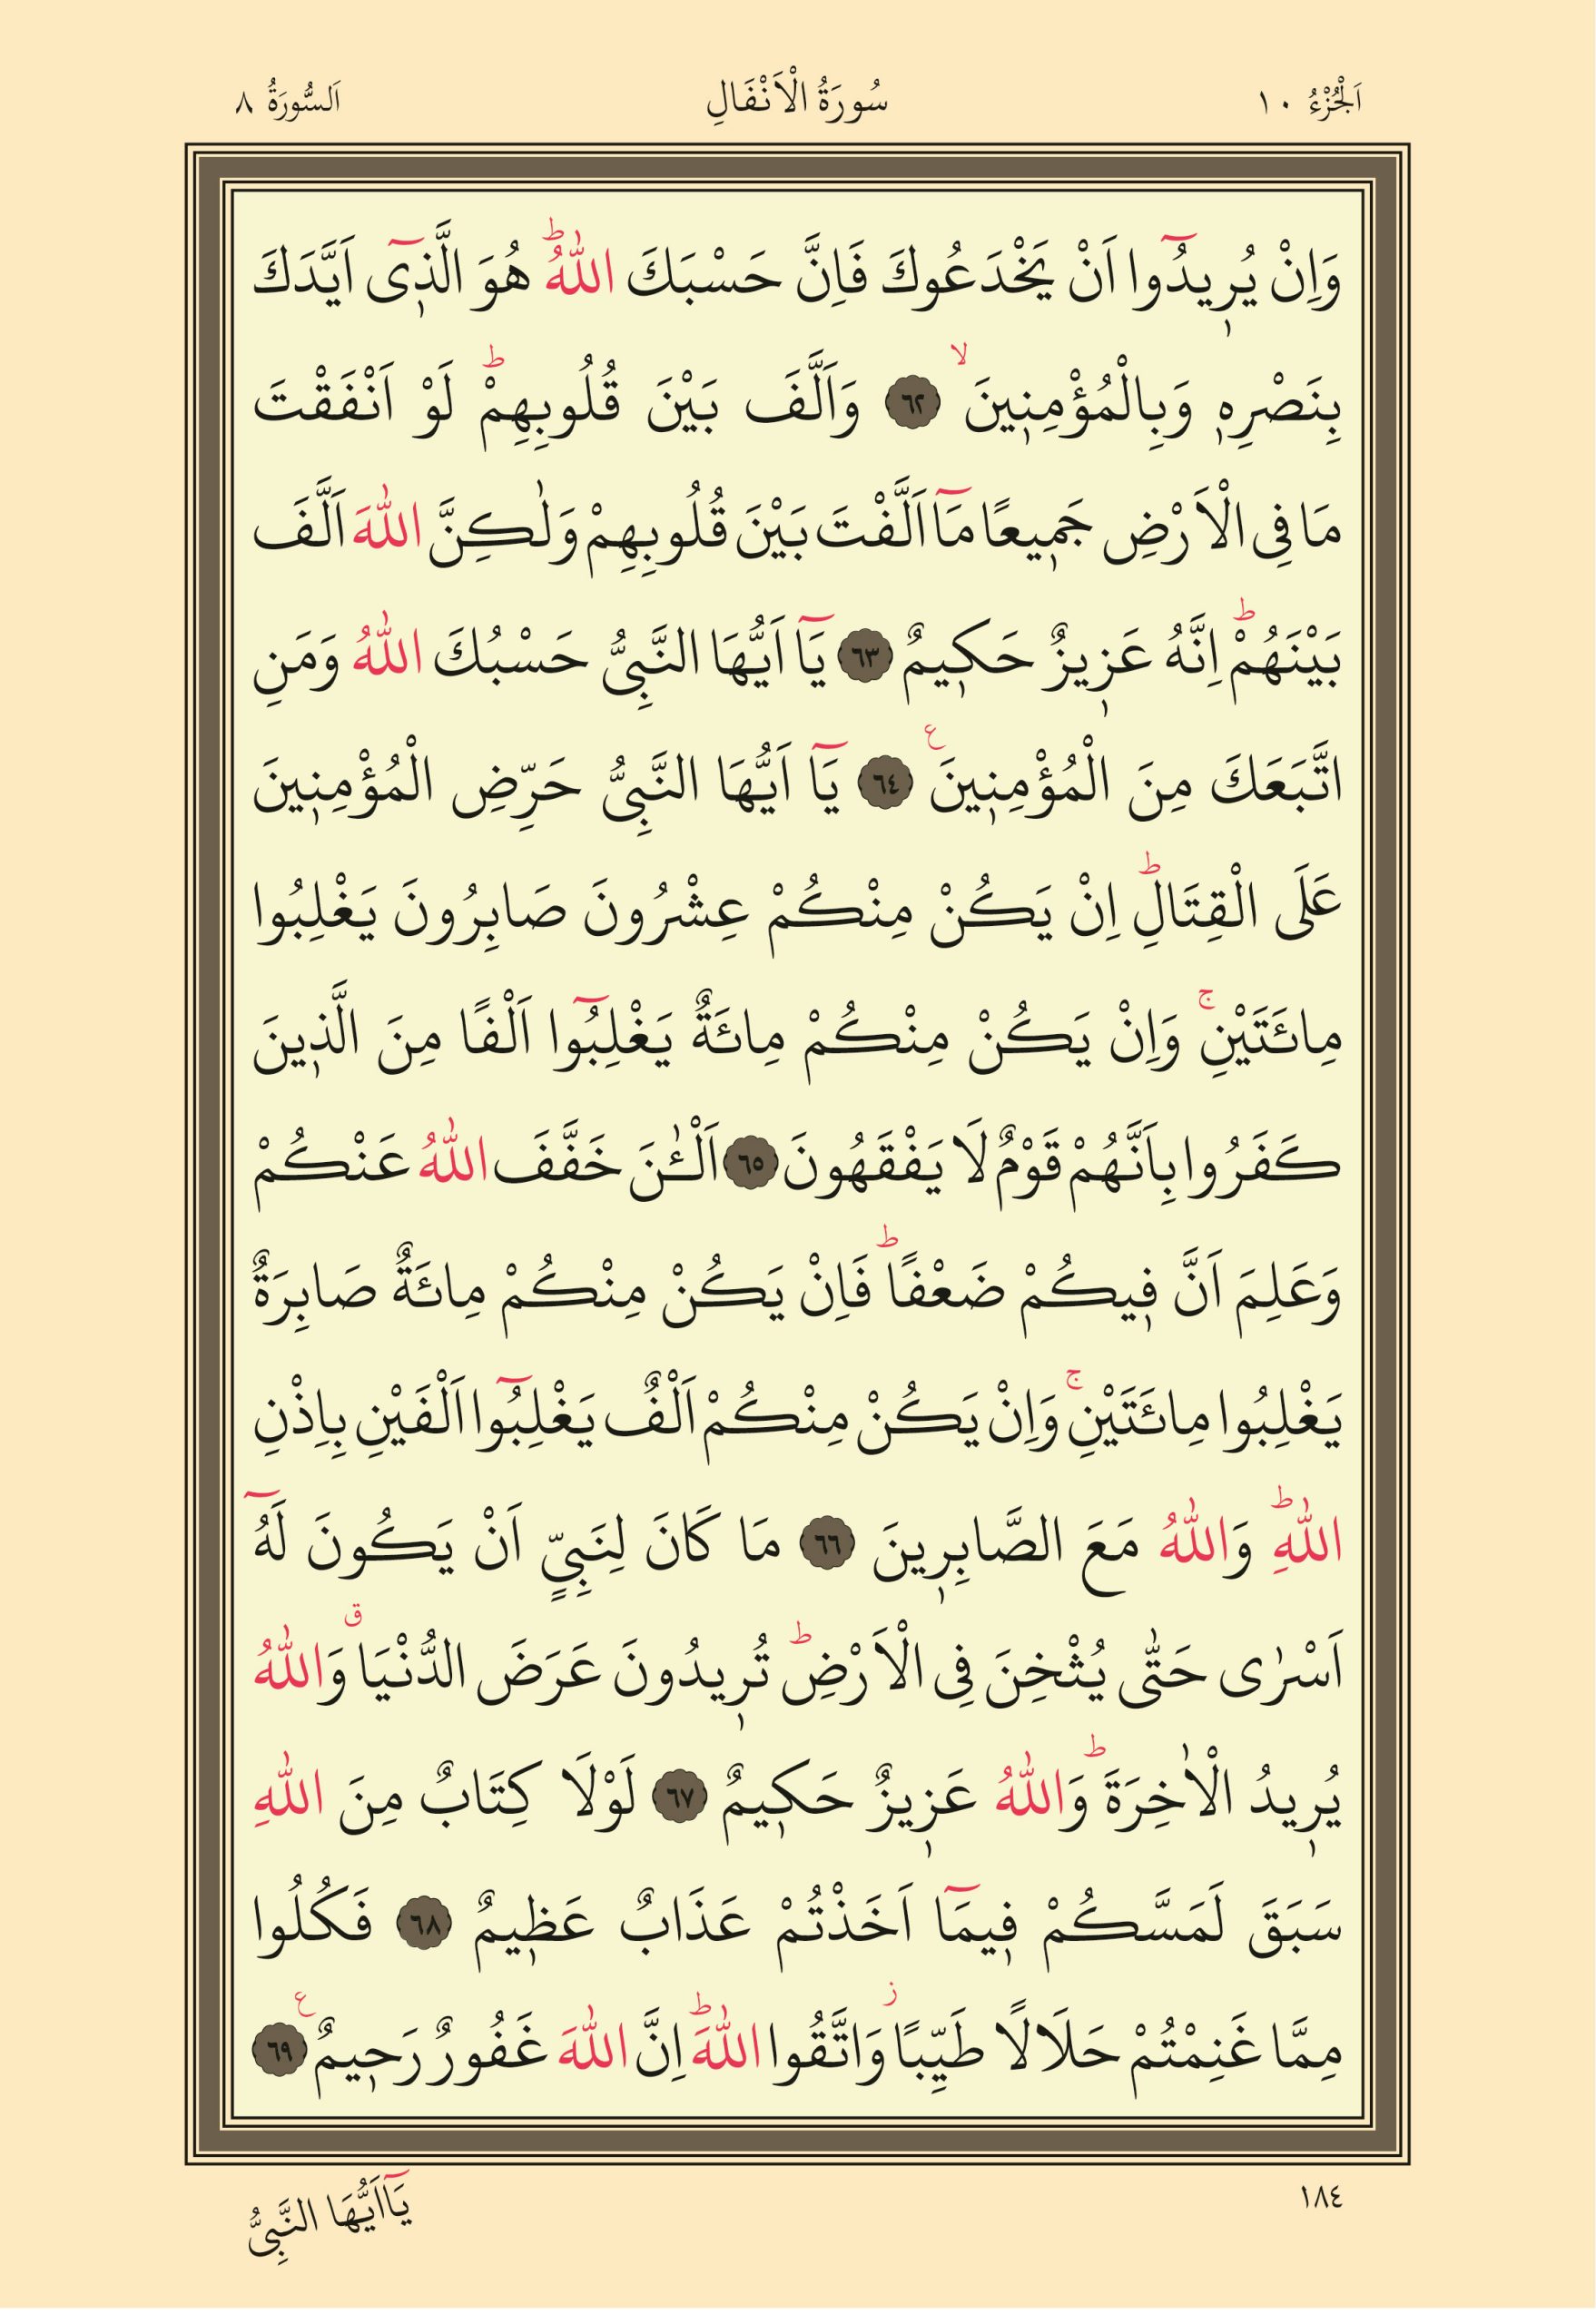 اَلْجُزْءُ ١٠
سُورَةُ الْاَنْفَالِ
اَلسُّورَةُ ٨
وَاِنْ يُر۪يدُٓوا اَنْ يَخْدَعُوكَ فَاِنَّ حَسْبَكَ اللّٰهُۜ هُوَ الَّذ۪ٓى اَيَّدَكَ
بِنَصْرِه۪ وَبِالْمُؤْمِن۪ينَۙ ﴿٦٢﴾ وَاَلَّفَ بَيْنَ قُلُوبِهِمْۜ لَوْ اَنْفَقْتَ
مَا فِى الْاَرْضِ جَم۪يعًا مَٓا اَلَّفْتَ بَيْنَ قُلُوبِهِمْ وَلٰكِنَّ اللّٰهَ اَلَّفَ
بَيْنَهُمْۜ اِنَّهُ عَز۪يزٌ حَك۪يمٌ ﴿٦٣﴾ يَٓا اَيُّهَا النَّبِىُّ حَسْبُكَ اللّٰهُ وَمَنِ
اتَّبَعَكَ مِنَ الْمُؤْمِن۪ينَ ع ﴿٦٤﴾ يَٓا اَيُّهَا النَّبِىُّ حَرِّضِ الْمُؤْمِن۪ينَ
عَلَى الْقِتَالِۜ اِنْ يَكُنْ مِنْكُمْ عِشْرُونَ صَابِرُونَ يَغْلِبُوا
مِائَتَيْنِۚ وَاِنْ يَكُنْ مِنْكُمْ مِائَةٌ يَغْلِبُٓوا اَلْفًا مِنَ الَّذ۪ينَ
كَفَرُوا بِاَنَّهُمْ قَوْمٌ لَا يَفْقَهُونَ ﴿٦٥﴾ اَلْـٰٔنَ خَفَّفَ اللّٰهُ عَنْكُمْ
وَعَلِمَ اَنَّ ف۪يكُمْ ضَعْفًاۜ فَاِنْ يَكُنْ مِنْكُمْ مِائَةٌ صَابِرَةٌ
يَغْلِبُوا مِائَتَيْنِۚ وَاِنْ يَكُنْ مِنْكُمْ اَلْفٌ يَغْلِبُٓوا اَلْفَيْنِ بِاِذْنِ
اللّٰهِۜ وَاللّٰهُ مَعَ الصَّابِر۪ينَ ﴿٦٦﴾ مَا كَانَ لِنَبِىٍّ اَنْ يَكُونَ لَهُٓ
اَسْرٰى حَتّٰى يُثْخِنَ فِى الْاَرْضِۜ تُر۪يدُونَ عَرَضَ الدُّنْيَاۗ وَاللّٰهُ
يُر۪يدُ الْاٰخِرَةَۜ وَاللّٰهُ عَز۪يزٌ حَك۪يمٌ ﴿٦٧﴾ لَوْلَا كِتَابٌ مِنَ اللّٰهِ
سَبَقَ لَمَسَّكُمْ ف۪يمَٓا اَخَذْتُمْ عَذَابٌ عَظ۪يمٌ ﴿٦٨﴾ فَكُلُوا
مِمَّا غَنِمْتُمْ حَلَالًا طَيِّبًاۘ وَاتَّقُوا اللّٰهَۜ اِنَّ اللّٰهَ غَفُورٌ رَح۪يمٌ ع ﴿٦٩﴾
١٨٤
يَٓا اَيُّهَا النَّبِىُّ